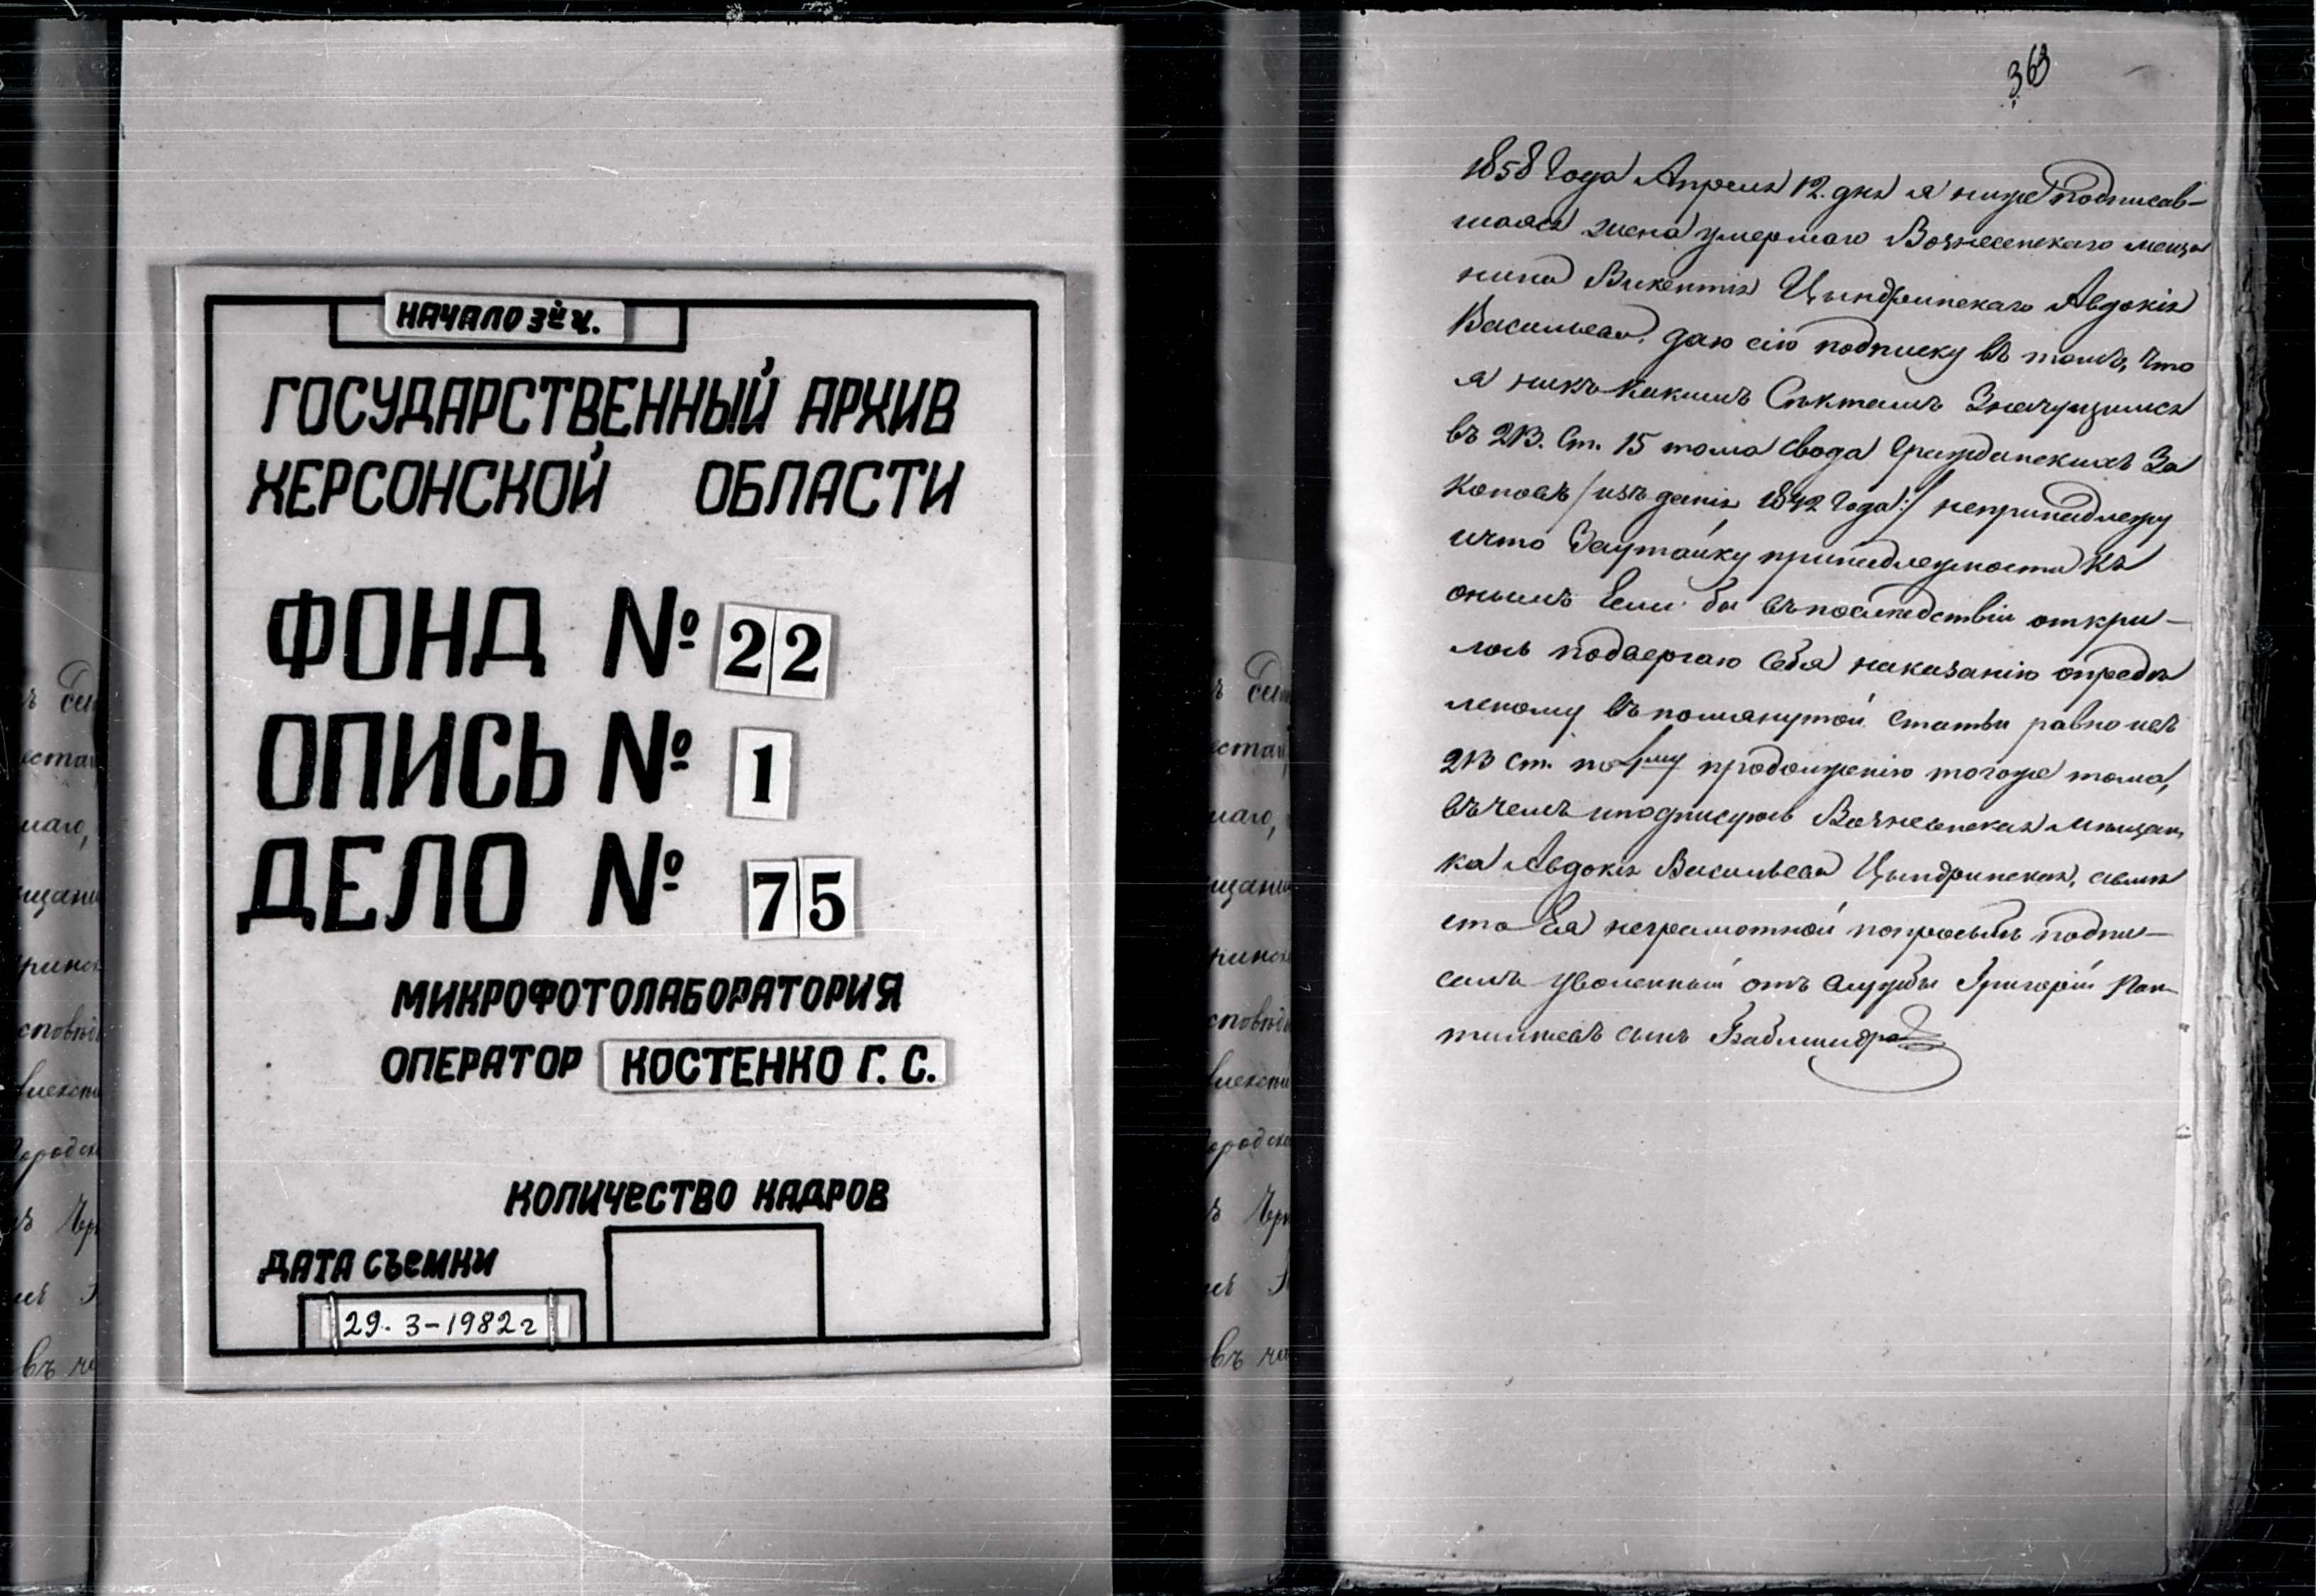 НАЧАЛО 3й ч.
ГОСУДАРСТВЕННЫЙ АРХИВ
ХЕРСОНСКОЙ ОБЛАСТИ
ФОНД № 22
ОПИСЬ № 1
ДЕЛО № 75
МИКРОФОТОЛАБОРАТОРИЯ
ОПЕРАТОР КОСТЕНКО Г. С.
КОЛИЧЕСТВО КАДРОВ
ДАТА СЪЕМКИ
29. 3-1982 г
363
1858 Года Апреля 12. дня я ниже подписав-
шаяся жена умершаго Вознесенскаго меща
нина Викентия Цындринскаго Авдокія
Васильева, даю сію подписку въ томъ, что
я никъ какимъ Сѣктамъ Значущимся
въ 213. Ст. 15 тома свода Гражданскихъ За
коновъ /изъ данія 1842 Года:/ непринадлежу
ичто Заутайку принадлежности къ
онымъ Если бы въпоследствіи откри-
лось подвергаю себя наказанію опредѣ
леному въпомянутой статьи равно исъ
213 ст. по продолженію тогоже тома,
въчемъ иподписуюсь Вознесенская мещан,
ка Авдокія Васильева Цындринская, авмѣ
сто Ея неграмотной попрозьбѣ подпи-
салъ уволенный отъ службы Григорій Пан-
сынъ